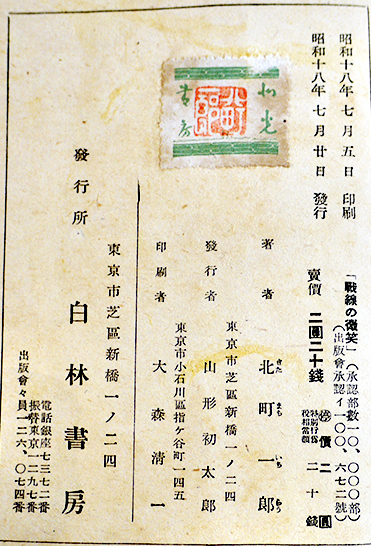 昭和十八年七月五日 印刷
昭和十八年七月廿日 發行
「戰線の微笑」(承認部數一〇、〇〇〇部)
(出版會承認イ一〇〇、六七二號)
賣價 二圓二十錢
價二圓
特別行爲税相當額
二十錢
著者 北町一郎
きたまちいちろう
東京市芝區新橋一ノ二四
發行者 山形初太郎
東京市小石川區指ケ谷町一四五
印刷者 大森清一
東京市芝區新橋一ノ二四
發行所 白林書房
電話銀座七三七二番
振替東京一二九七番
出版會々員一二六、〇七四番
書房
北町